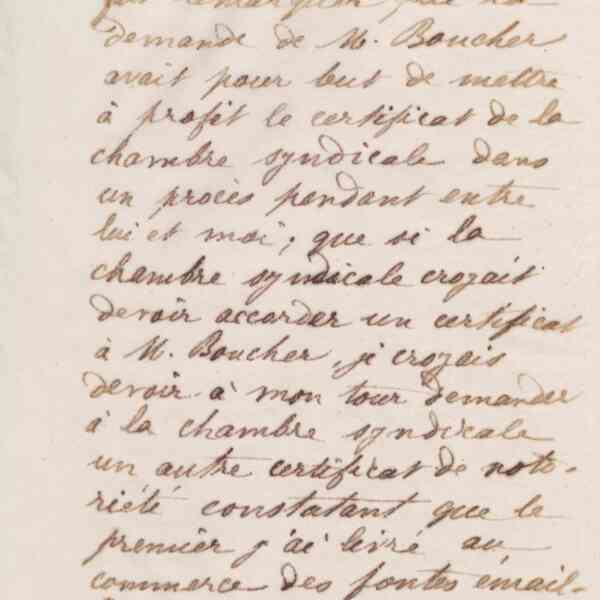 demande de M. Boucher
avait pour but de mettre
à profit le certificat de la
chambre syndicale dans
un procès pendant entre
lui et moi; que si la
chambre syndicale croyait
devoir accorder un certificat
à M. Boucher, je croyais
devoir à mon tour demander
à la chambre syndicale
un autre certificat de noto-
riété constatant que le
premier j'ai livré au
commerce des fontes émail-